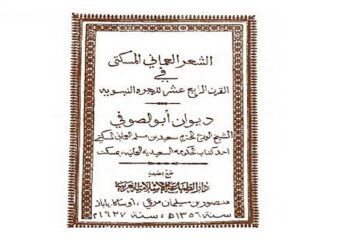 الشعر العماني المسكتي
في
القرن الرابع عشر للهجرة النبوية
ديوان أبو الصوفي
الشيخ سعيد بن مسلم العماني
احد كتاب الحكومة السعيدية العمانية بمسكت
طبع بمطبعة
دار الطباعة الاسلامية العربية
منصور بن سليمان اوساكا يابان
سنة ١٣٥٦هـ سنة ١٩٣٧م